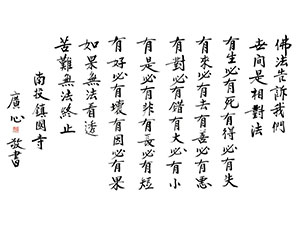 佛法告訴我們
世间是相對法
有生必有死有得必有失
有來必有去有善必有惡
有對必有錯有大必有小
有是必有非有長必有短
有好必有壞有因必有果
如果無法看透
苦難無法終止
南投鎮國寺
廣心 敬書